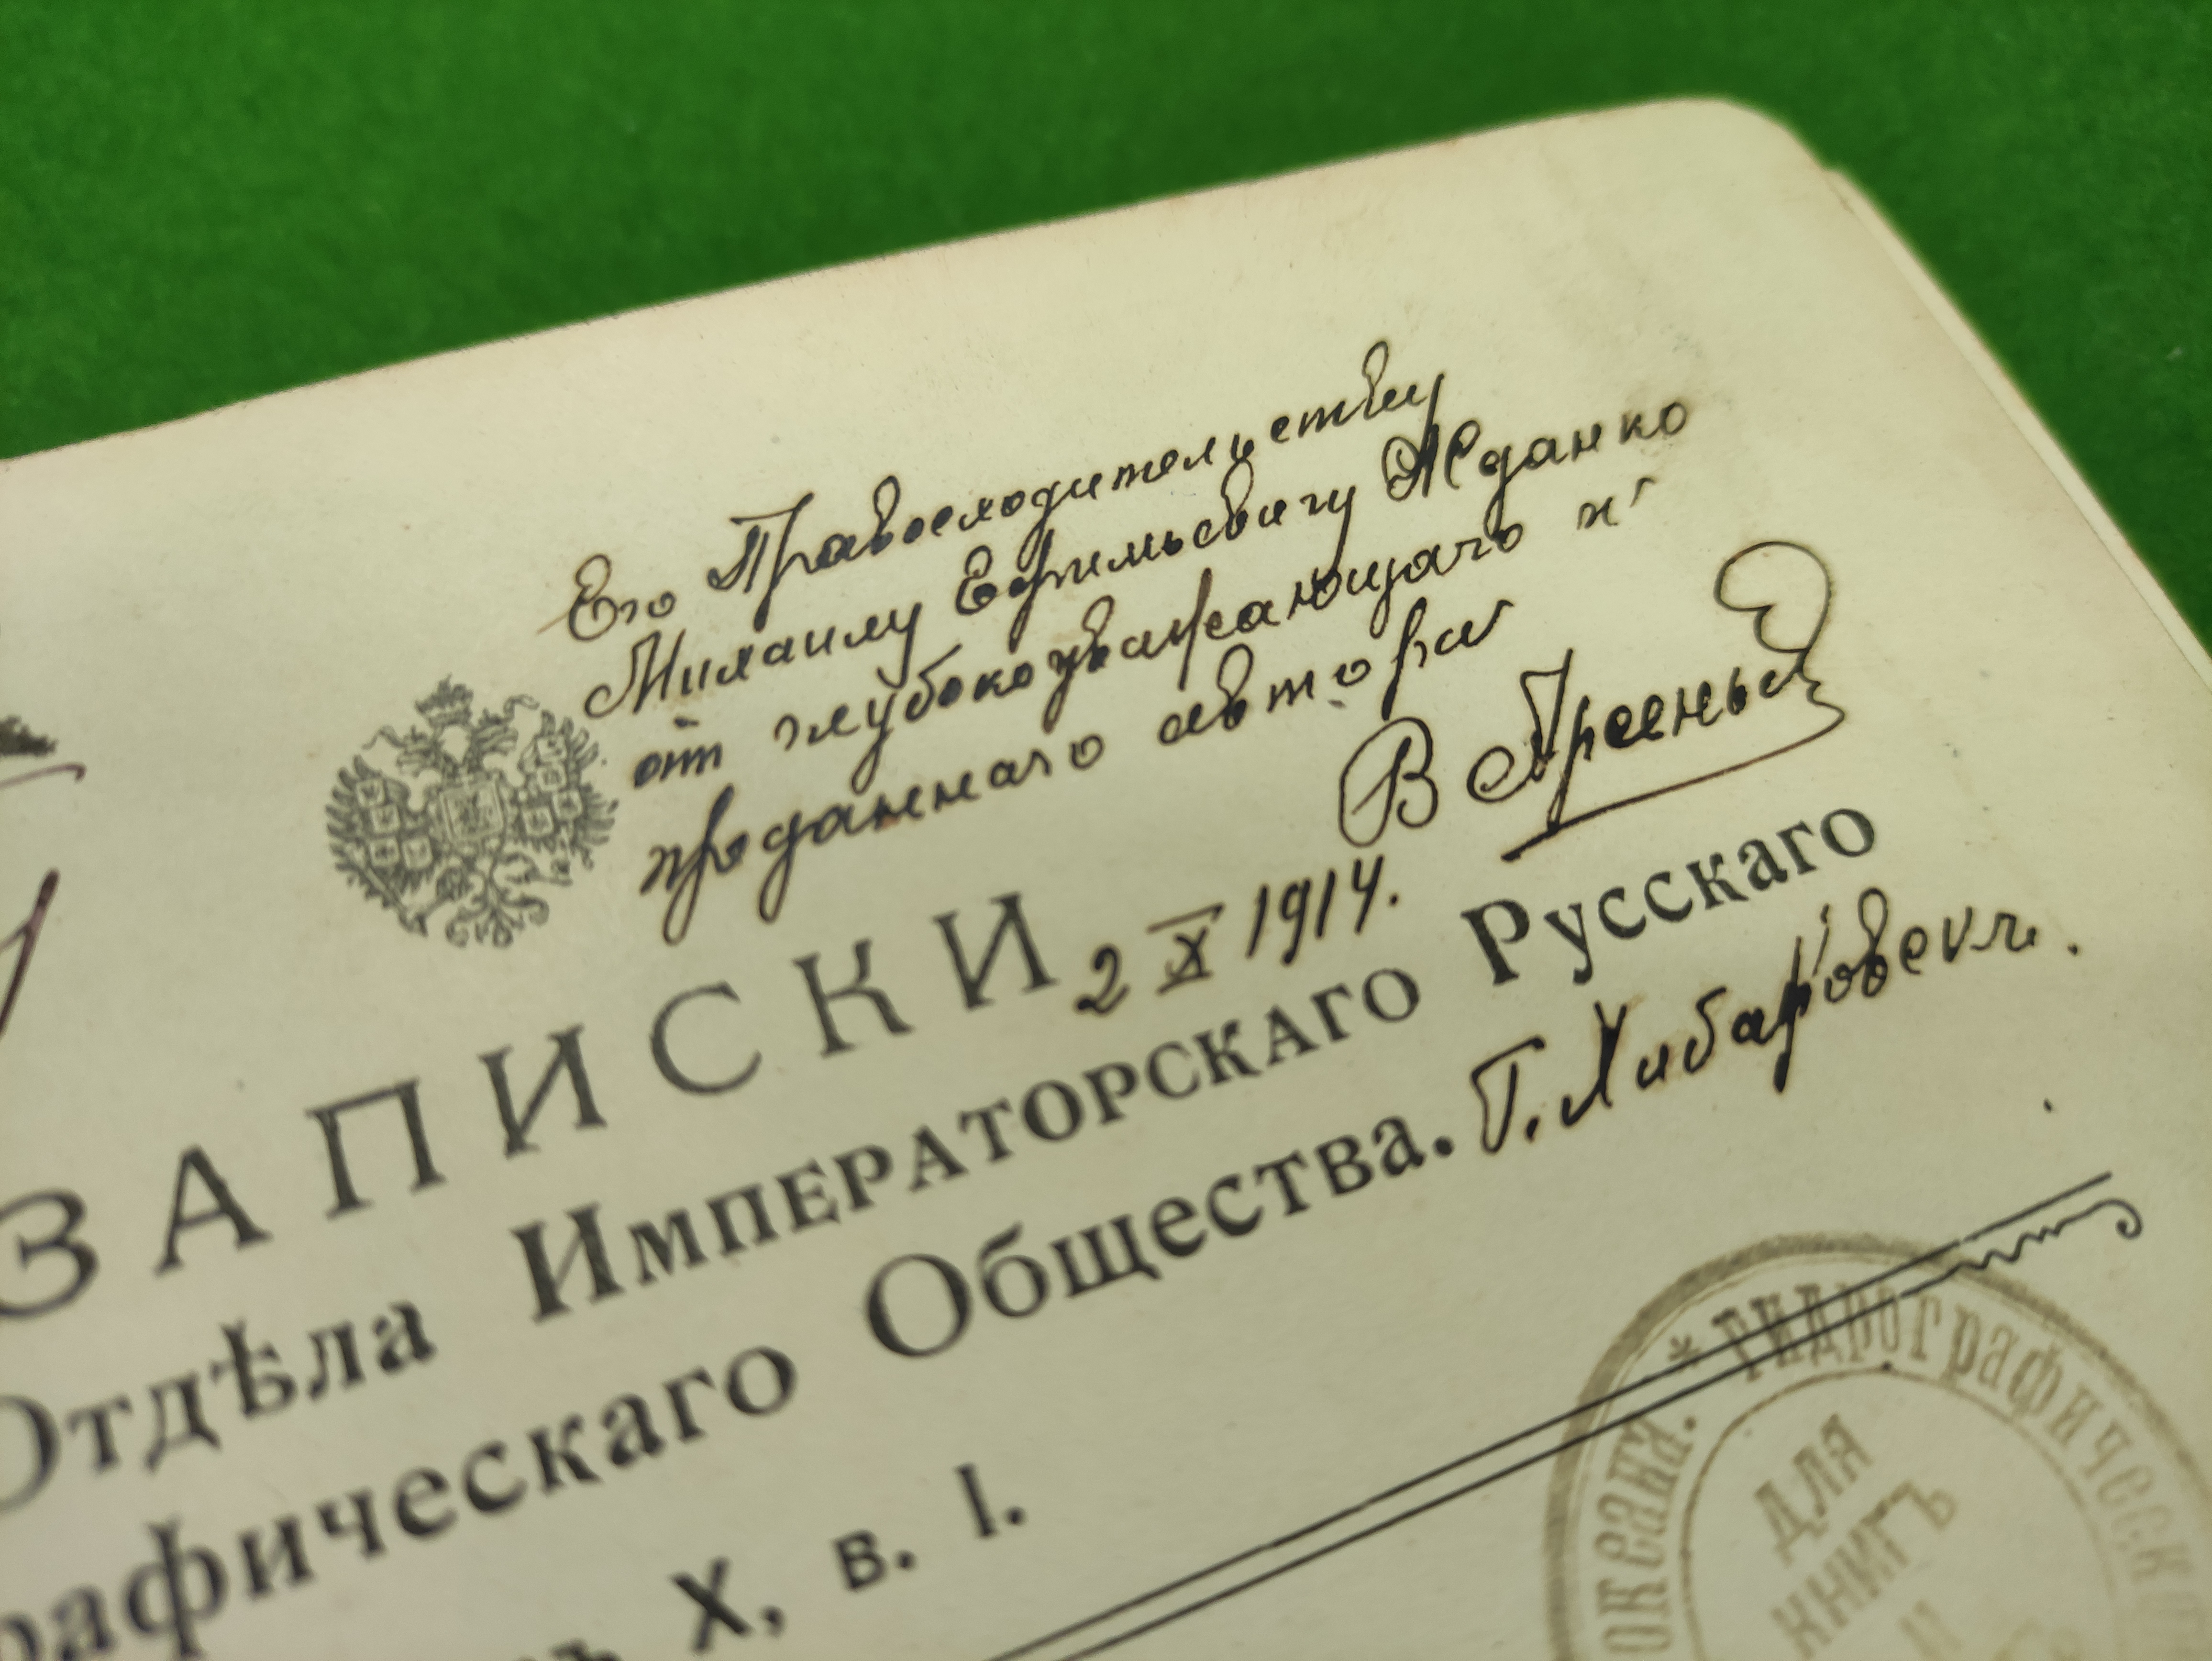 Его Превосходительству
Михаилу Ефимьевичу Жданко
от глубокоуважающаго и
преданнаго автора
В Арсеньев
ЗАПИСКИ
2 X 1914.
Отдѣла Императорскаго Русскаго
рафическаго Общества.
Г. Хабаровскъ.
X, в. I.
* Гидрографическ
океана.
ДЛЯ
КНИГЪ
И